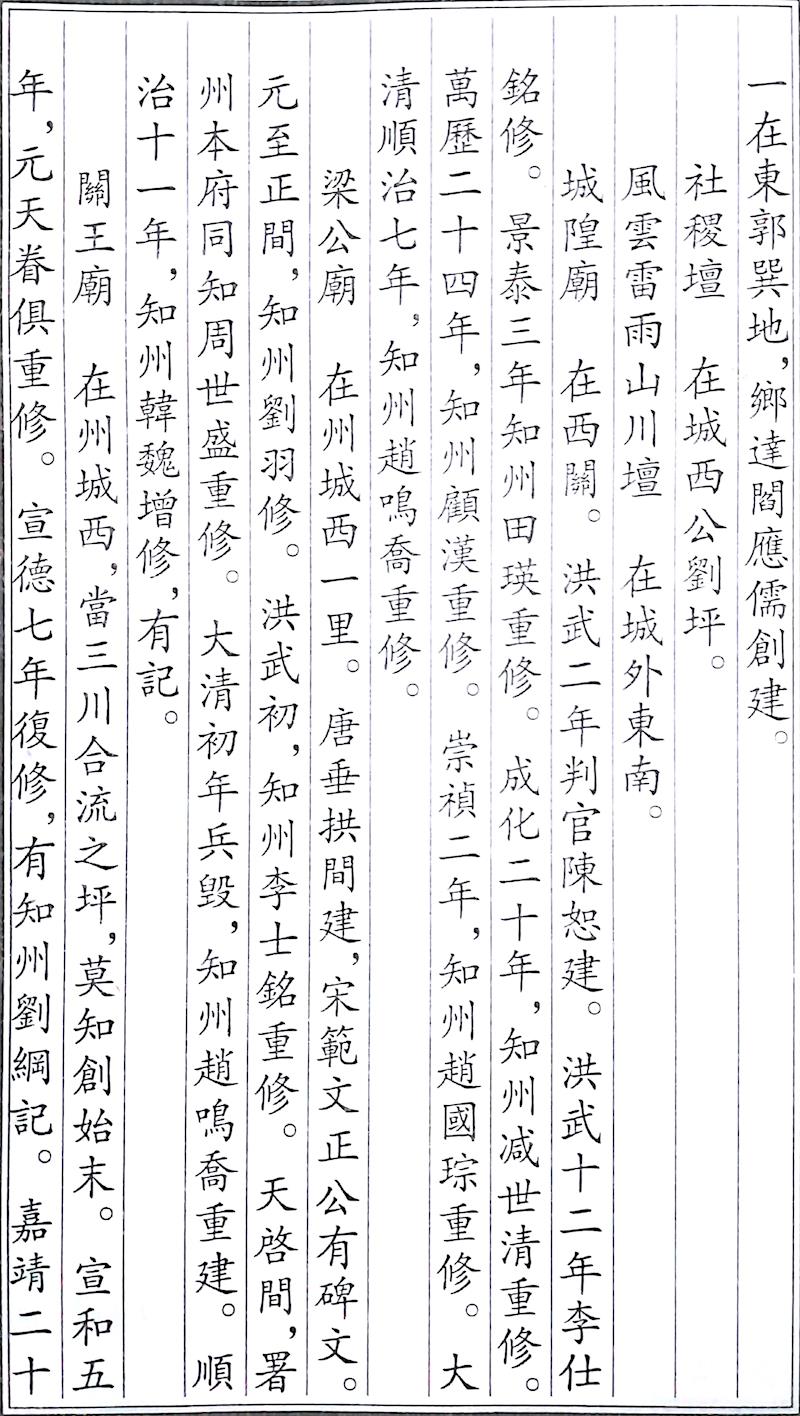 一在東郭巽地，鄉達閻應儒創建。
社稷壇　在城西公劉坪。
風雲雷雨山川壇　在城外東南。
城隍廟　在西關。洪武二年判官陳恕建。洪武十二年李仕
銘修。景泰三年知州田瑛重修。成化二十年，知州减世清重修。
萬歷二十四年，知州顧漢重修。崇禎二年，知州趙國琮重修。大
清順治七年，知州趙鳴喬重修。
梁公廟　在州城西一里。唐垂拱間建，宋範文正公有碑文。
元至正間，知州劉羽修。洪武初，知州李士銘重修。天啓間，署
州本府同知周世盛重修。大清初年兵毁，知州趙鳴喬重建。順
治十一年，知州韓魏增修，有記。
關王廟　在州城西，當三川合流之坪，莫知創始末。宣和五
年，元天眷俱重修。宣德七年復修，有知州劉綱記。嘉靖二十